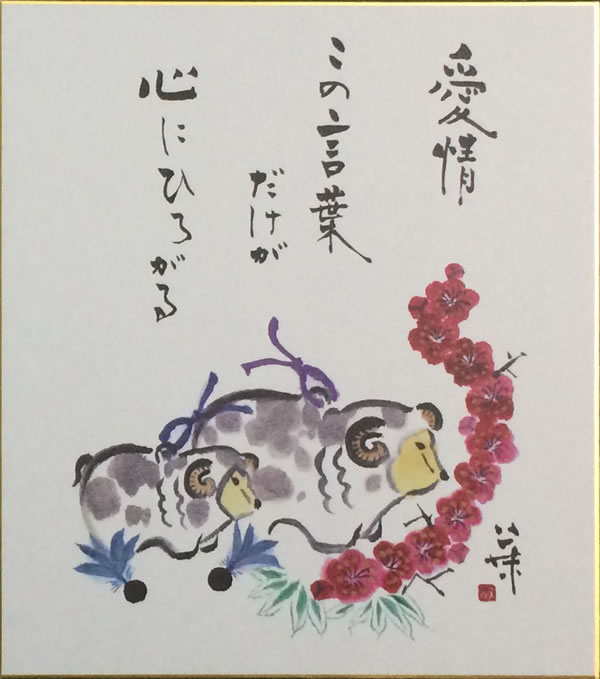 愛情
この言葉
だけが
心にひろがる